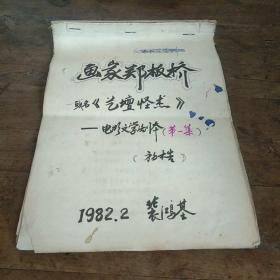 画家郑板桥
又名《艺坛怪杰》
—电影文学剧本(第一集)
(初稿)
1982.2 裴鸿基